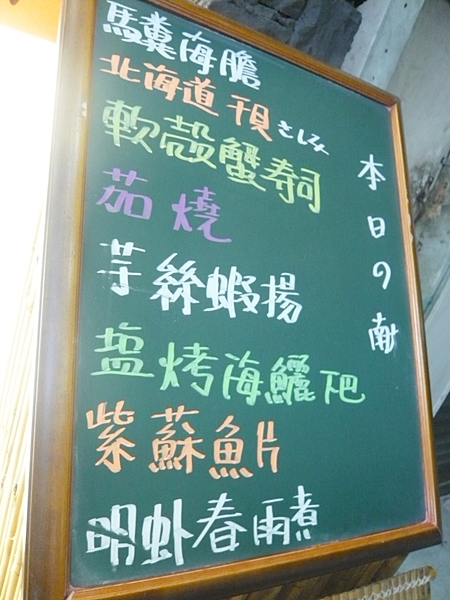 本日の献
馬糞海膽
北海道干貝さしみ
軟殼蟹寿司
茄燒
芋絲蝦揚
盐烤海鱺下巴
紫蘇魚片
明虾春雨煮